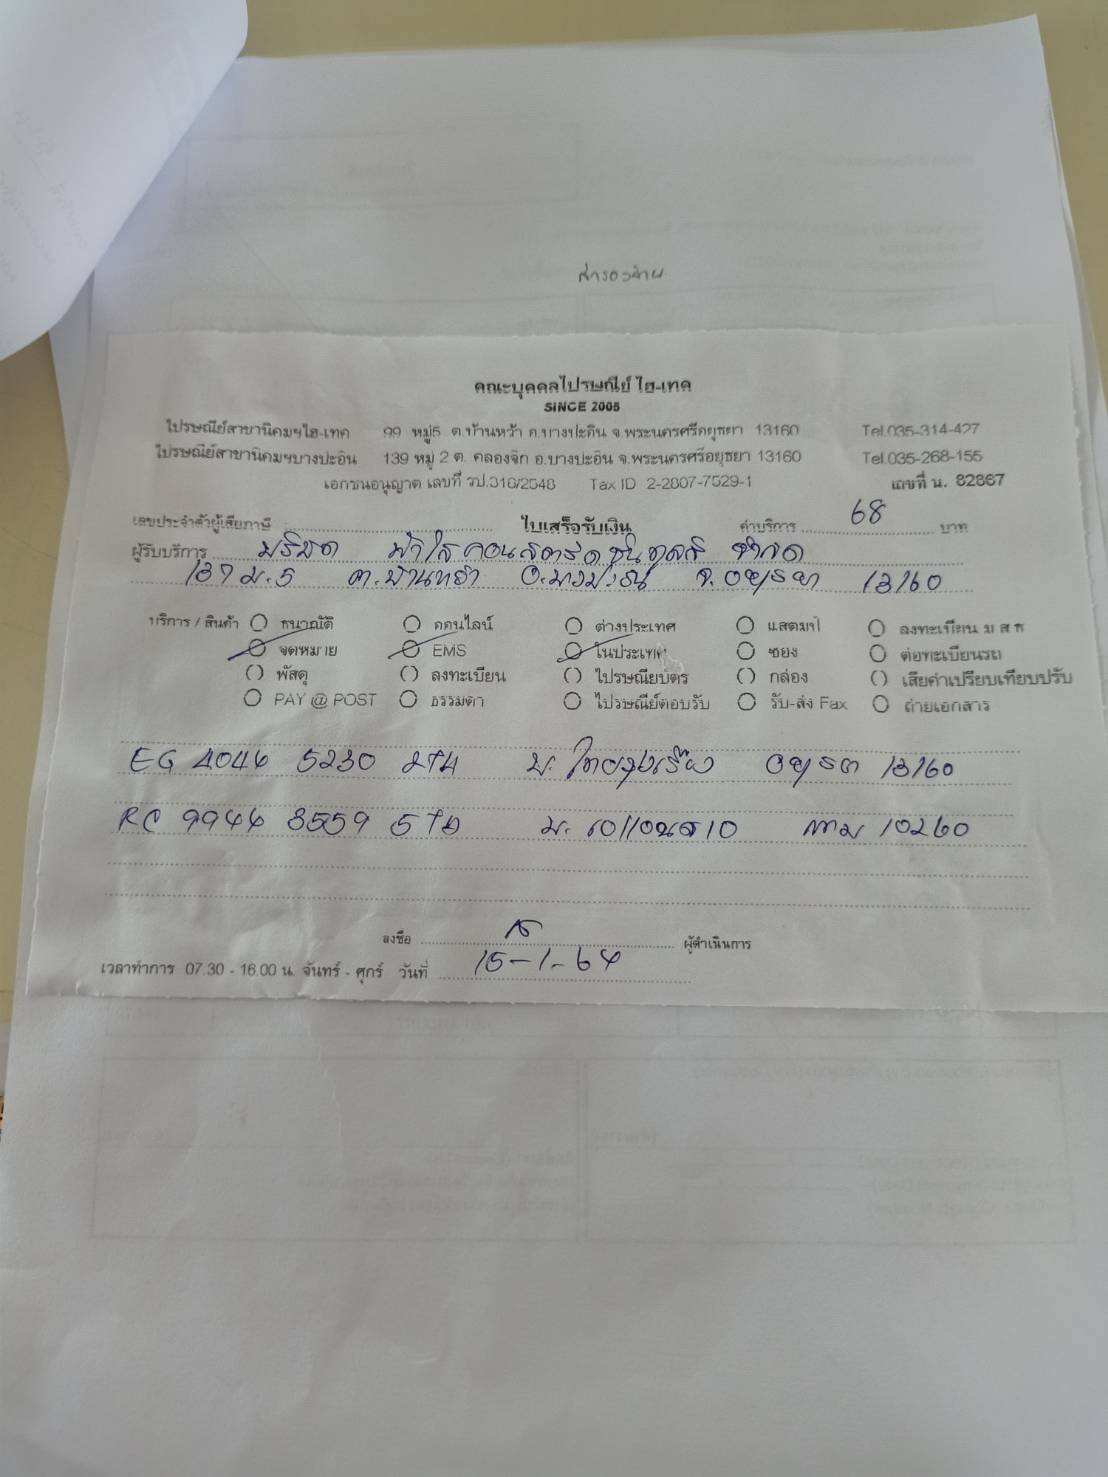 สำรองจ่าย
คณะบุคคลไปรษณีย์ ไฮ-เทค
SINCE 2005
ไปรษณีย์สาขานิคมฯไฮ-เทค 99 หมู่5 ต.บ้านหว้า อ.บางปะอิน จ.พระนครศรีอยุธยา 13160 Tel.035-314-427
ไปรษณีย์สาขานิคมฯบางปะอิน 139 หมู่ 2 ต. คลองจิก อ.บางปะอิน จ.พระนครศรีอยุธยา 13160 Tel.035-268-155
เอกชนอนุญาต เลขที่ รป.316/2548 Tax ID 2-2807-7529-1 เลขที่ น. 82867
เลขประจำตัวผู้เสียภาษี ใบเสร็จรับเงิน ค่าบริการ 68 บาท
ผู้รับบริการ บริษัท ฟ้าใส คอนสตรัคชั่น จำกัด
ม.5 ต.บ้านหว้า อ.บางปะอิน จ.อยุธยา 13160
บริการ / สินค้า ธนาณัติ ออนไลน์ ต่างประเทศ แสตมป์ ลงทะเบียน ม ส ธ
จดหมาย EMS ในประเทศ ซอง ต่อทะเบียนรถ
พัสดุ ลงทะเบียน ไปรษณียบัตร กล่อง เสียค่าเปรียบเทียบปรับ
PAY @ POST ธรรมดา ไปรษณีย์ตอบรับ รับ-ส่ง Fax ถ่ายเอกสาร
EG 4046 5230 2TH บ. ไทยรุ่งเรือง 13160
RC 9944 3559 5TH บ. กทม 10260
ลงชื่อ ผู้ดำเนินการ
เวลาทำการ 07.30 - 16.00 น. จันทร์ - ศุกร์ วันที่ 15-1-64